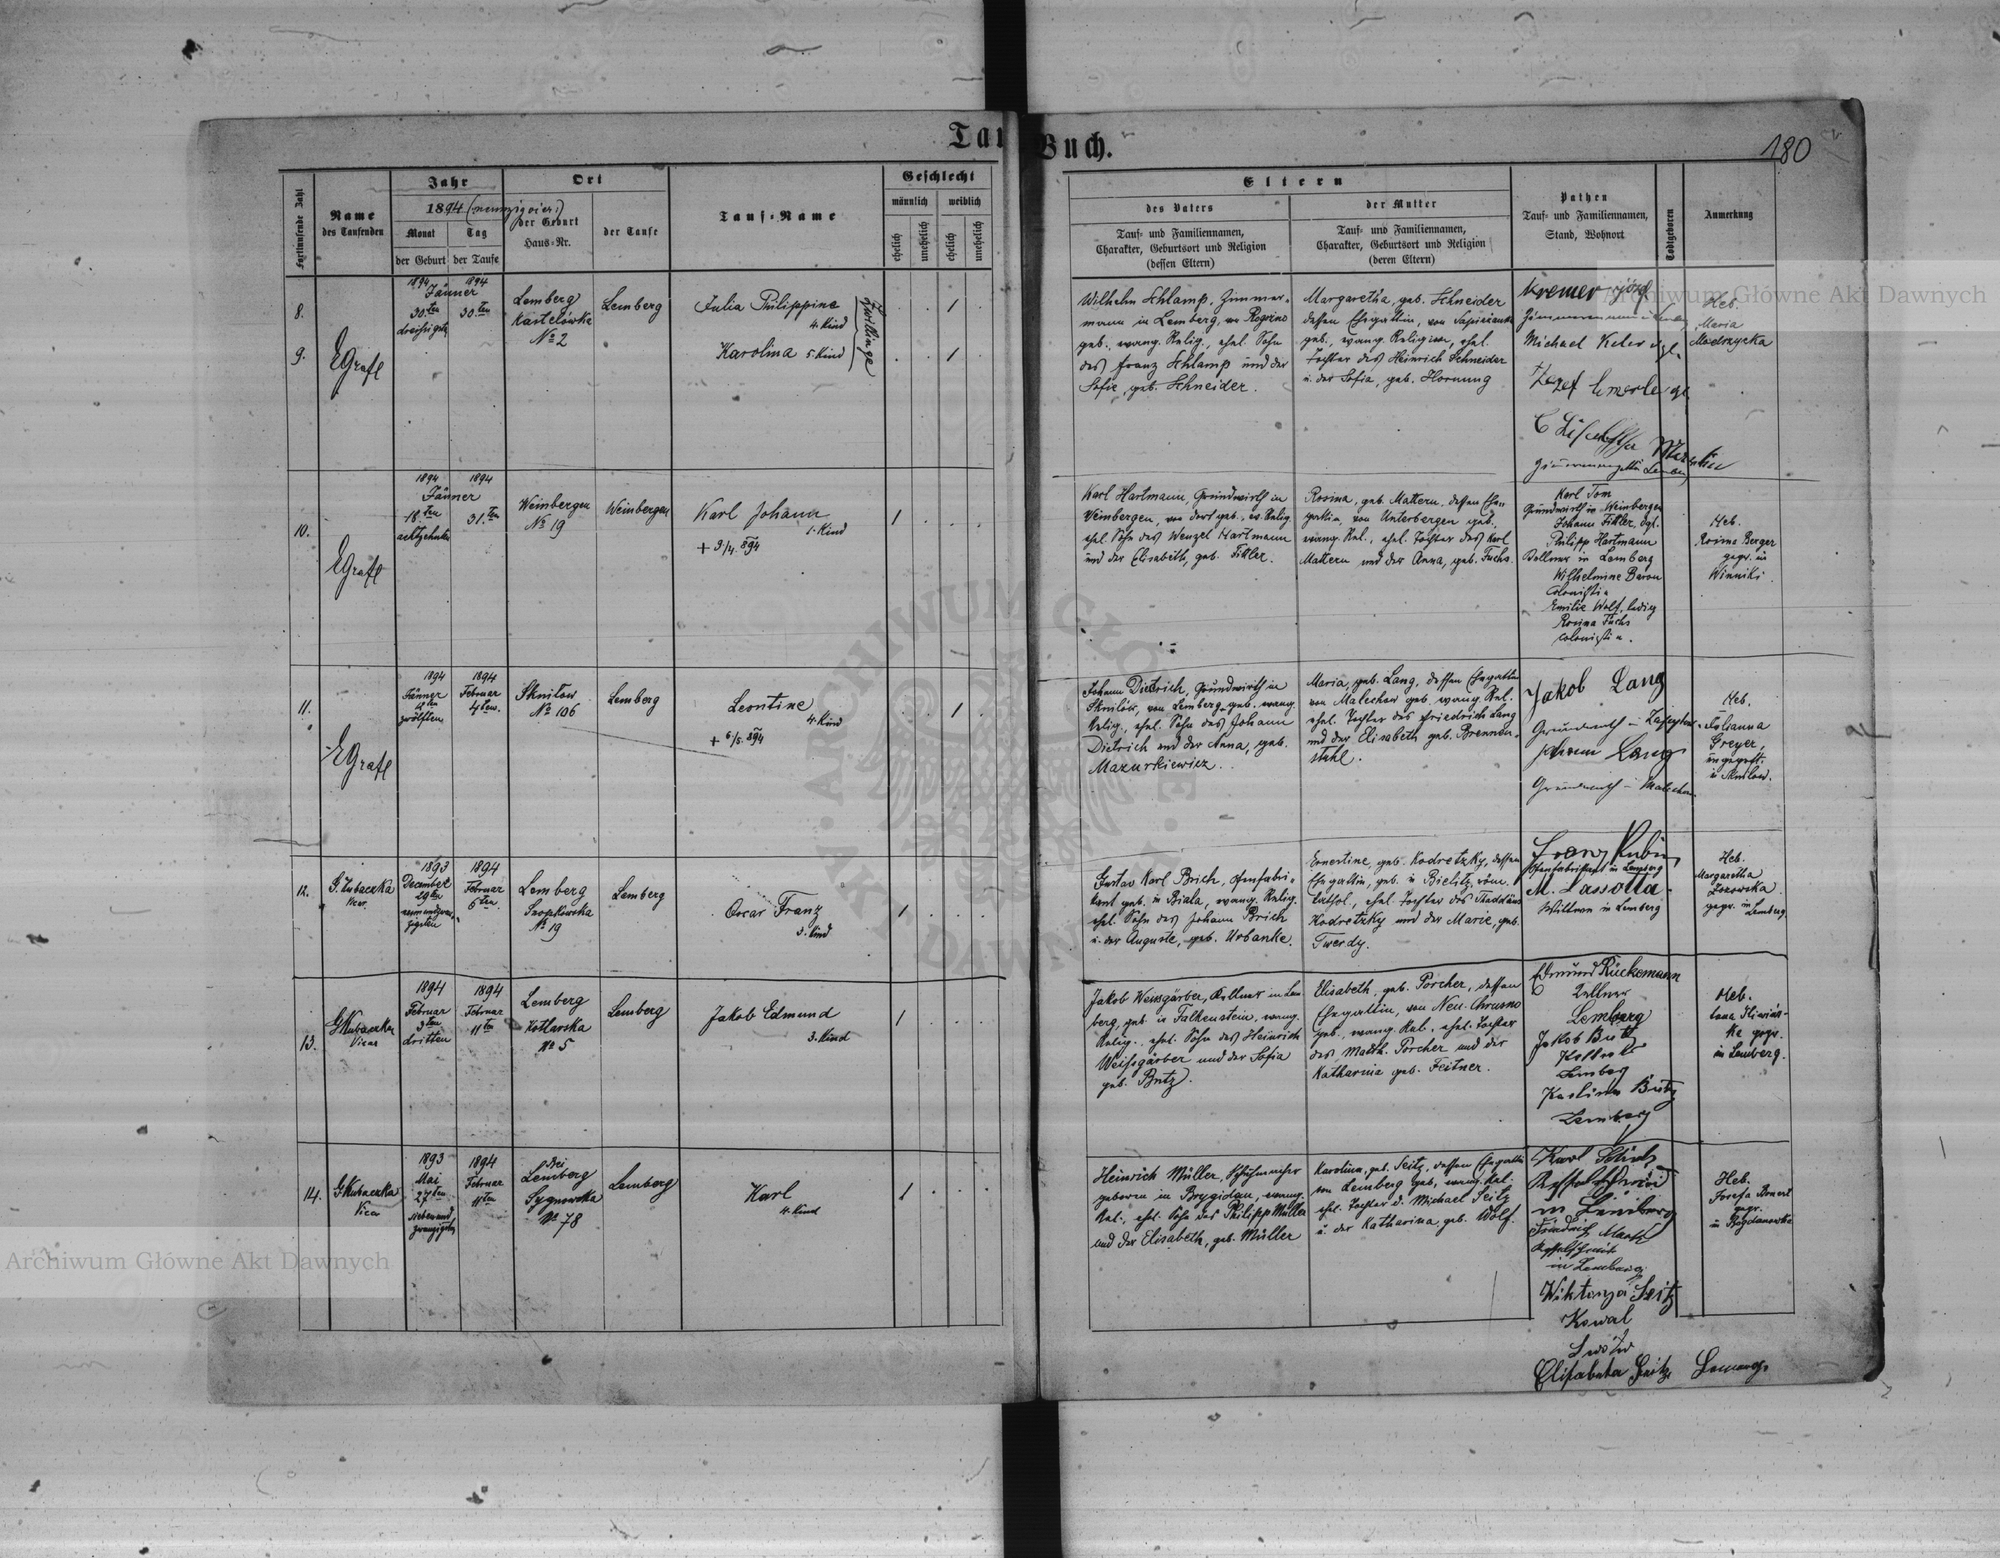 Tau
Buch.
180
Fortlaufende Zahl
Name
des Taufenden
Jahr
1894 (neunzigvier)
Monat
der Geburt
Tag
der Taufe
Ort
der Geburt
Haus-Nr.
der Taufe
Tauf-Name
Geschlecht
männlich
weiblich
ehelich
unehelich
ehelich
unehelich
Eltern
des Vaters
Tauf- und Familiennamen,
Charakter, Geburtsort und Religion
(dessen Eltern)
der Mutter
Tauf- und Familiennamen,
Charakter, Geburtsort und Religion
(deren Eltern)
Pathen
Tauf- und Familiennamen,
Stand, Wohnort
Todtgeboren
Anmerkung
8.
9.
EGrafl
1894
Jänner
30.ten
dreißigsten
1894
30.ten
Lemberg
Kastelówka
No 2
Lemberg
Julia Philippina
4. Kind
Karolina 5. Kind
Zwillinge
1
1
Wilhelm Schlamp, Zimmer-
mann in Lemberg, von
geb., evang. Relig., ehel. Sohn
des Franz Schlamp und der
Sofie, geb. Schneider.
Margaretha, geb. Schneider
dessen Ehegattin, von
geb., evang. Religion, ehel.
Tochter des Heinrich Schneider
u. der Sofia, geb. Hornung
Kremer
Michael
Heb.
Maria
10.
EGrafl
1894
Jänner
18.ten
achtzehnten
1894
31.ten
Weinbergen
No 19
Weinbergen
Karl Johann
1. Kind
+ 3/4. 894
1
Karl Hartmann, Grundwirth in
Weinbergen, von dort geb., ev. Relig.
ehel. Sohn des Wenzel Hartmann
und der Elisabeth, geb. Fikler.
Rosina, geb. Mattern, dessen Ehe-
gattin, von Unterbergen geb.
evang. Rel., ehel. Tochter des Karl
Mattern und der Anna, geb. Fuchs.
Karl Tom
Grundwirth in Weinbergen
Johann Fikler, dgl.
Philipp Hartmann
Kellner in Lemberg
Wilhelmine Baron
Colonistin
Emilie Wolf, ledig
Rosina Fuchs
Colonistin.
Heb.
Rosina Berger
gepr. in
Winniki.
11.
EGrafl
1894
Jänner
12ten
zwölften
1894
Februar
4ten
Sknilow
No 106
Lemberg
Leontine
4. Kind
+ 6/5. 894
1
Johann Dietrich, Grundwirth in
Sknilow, von Lemberg geb. evang.
Relig., ehel. Sohn des Johann
Dietrich und der Anna, geb.
Mazurkiewicz.
Maria, geb. Lang, dessen Ehegattin
von Malechow geb. evang. Rel.
ehel. Tochter des Friedrich Lang
und der Elisabeth geb. Brennen-
stuhl.
Jakob Lang
Grundwirth –
Johann Lang
Grundwirth – Malechow
Heb.
Julianna
Greyer,
ungeprft.
in Sknilow.
12.
G. Kubaczka
Vicar.
1893
December
29ten
neunundzwan-
zigsten
1894
Februar
6ten
Lemberg
Snopkowska
No 19
Lemberg
Oscar Franz
3. Kind
1
Gustav Karl Brich, Ofenfabri-
kant geb. in Biala, evang. Relig.
ehel. Sohn des Johann Brich
u. der Auguste, geb. Urbanke.
Ernestine geb. Kodretzky, dessen
Ehegattin, geb. in Bielitz, röm.
kathol., ehel. Tochter des Thaddäus
Kodretzky und der Marie, geb.
Twerdy.
Franz Rubin
Ofenfabrikant in Lemberg
M. Lassotta
in Lemberg
Heb.
Margaretha
gepr. in
Lemberg.
13.
G. Kubaczka
Vicar
1894
Februar
3ten
dritten
1894
Februar
11ten
Lemberg
Kotlarska
No 5
Lemberg
Jakob Edmund
3. Kind
1
Jakob Weissgärber, Kellner in Lem
berg, geb. in Falkenstein, evang.
Relig., ehel. Sohn des Heinrich
Weißgärber und der Sofia
geb. Butz.
Elisabeth, geb. Porcher, dessen
Ehegattin, von Neu-Chrusno
geb., evang. Rel., ehel. Tochter
des Matth. Porcher und der
Katharina geb. Feitner.
Edmund Rückemann
Kellner
Lemberg
Jakob Butz
Lemberg
Karlina Butz
Lemberg
Heb.
gepr.
in Lemberg.
14.
G. Kubaczka
Vicar
1893
Mai
27ten
siebenund
zwanzigsten
1894
Februar
11ten
bei
Lemberg
Sygniowka
No 78
Lemberg
Karl
4. Kind
1
Heinrich Müller, Schuhmacher
geboren in Brygidau, evang.
Rel., ehel. Sohn des Philipp Müller
und der Elisabeth, geb. Müller
Karolina, geb. Seitz, dessen Ehegattin
von Lemberg geb., evang. Rel.
ehel. Tochter d. Michael Seitz
u. der Katharina, geb. Wolf.
Karl
in Lemberg
Friedrich
in Lemberg
Wiktorya Seitz
Kowal
Elisabeta Seitz
Heb.
Josefa
gepr.
in Bogdanowka
Archiwum Główne Akt Dawnych
Archiwum Główne Akt Dawnych
ARCHIWUM GŁÓWNE AKT DAWNYCH